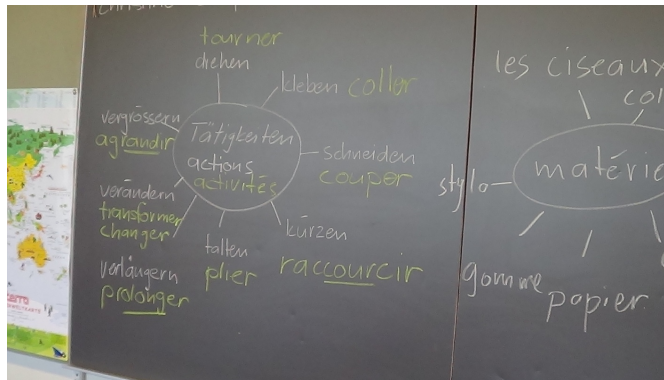 tourner
drehen
kleben coller
vergrössern
agrandir
Tätigkeiten
actions
activités
schneiden
couper
verändern
transformer
changer
falten
plier
kürzen
raccourcir
verlängern
prolonger
les ciseaux
col
matérie
stylo
gomme
papier